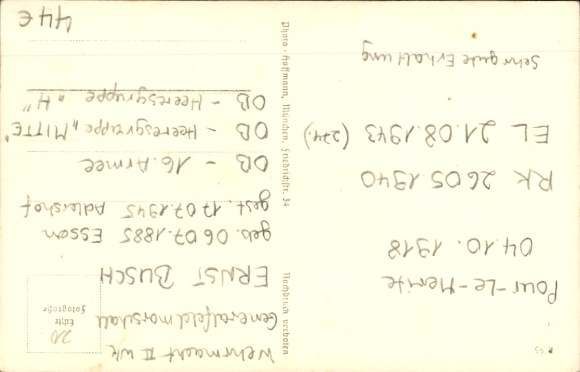 R 95
Pour-Le-Merite
04.10.1918
RK 26 05.1940
EL 21.08.1943 (274.)
Sehr gute Erhaltung
Nachdruck verboten
Photo-Hoffmann, München, Friedrichstr. 34
Wehrmacht II Wk
Generalfeldmarschall
Echte
Fotografie
20
ERNST BUSCH
geb. 06.07.1885 Essen
gest. 17.07.1945 Adlershof
OB - 16 Armee
OB - Heeresgruppe „MITTE"
OB - Heeresgruppe „H"
44€